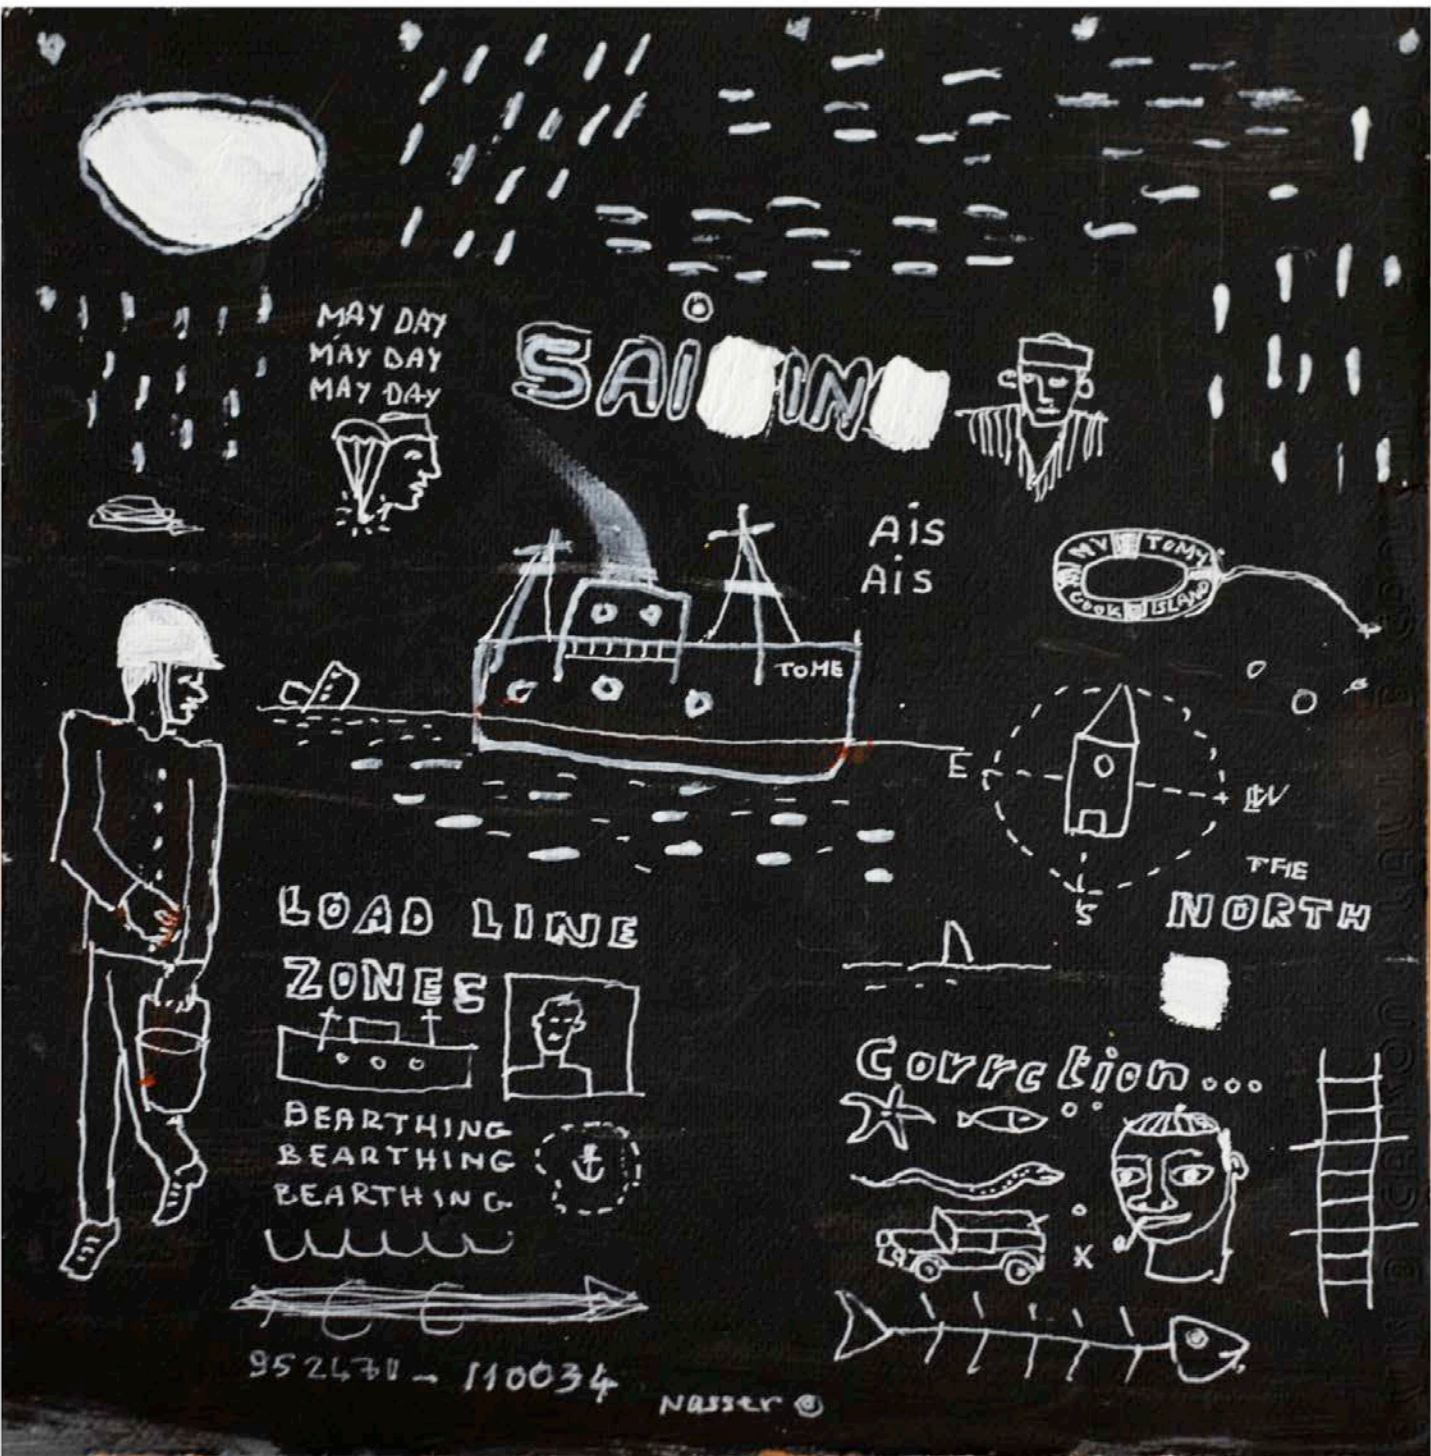 MAY DAY
MAY DAY
MAY DAY
SAI IN
AiS
AiS
MV TOMY
COOK ISLAND
TOME
E
W
S
THE
NORTH
LOAD LINE
ZONES
Corrction...
BEARTHING
BEARTHING
BEARTHING
x
110034
Nasser